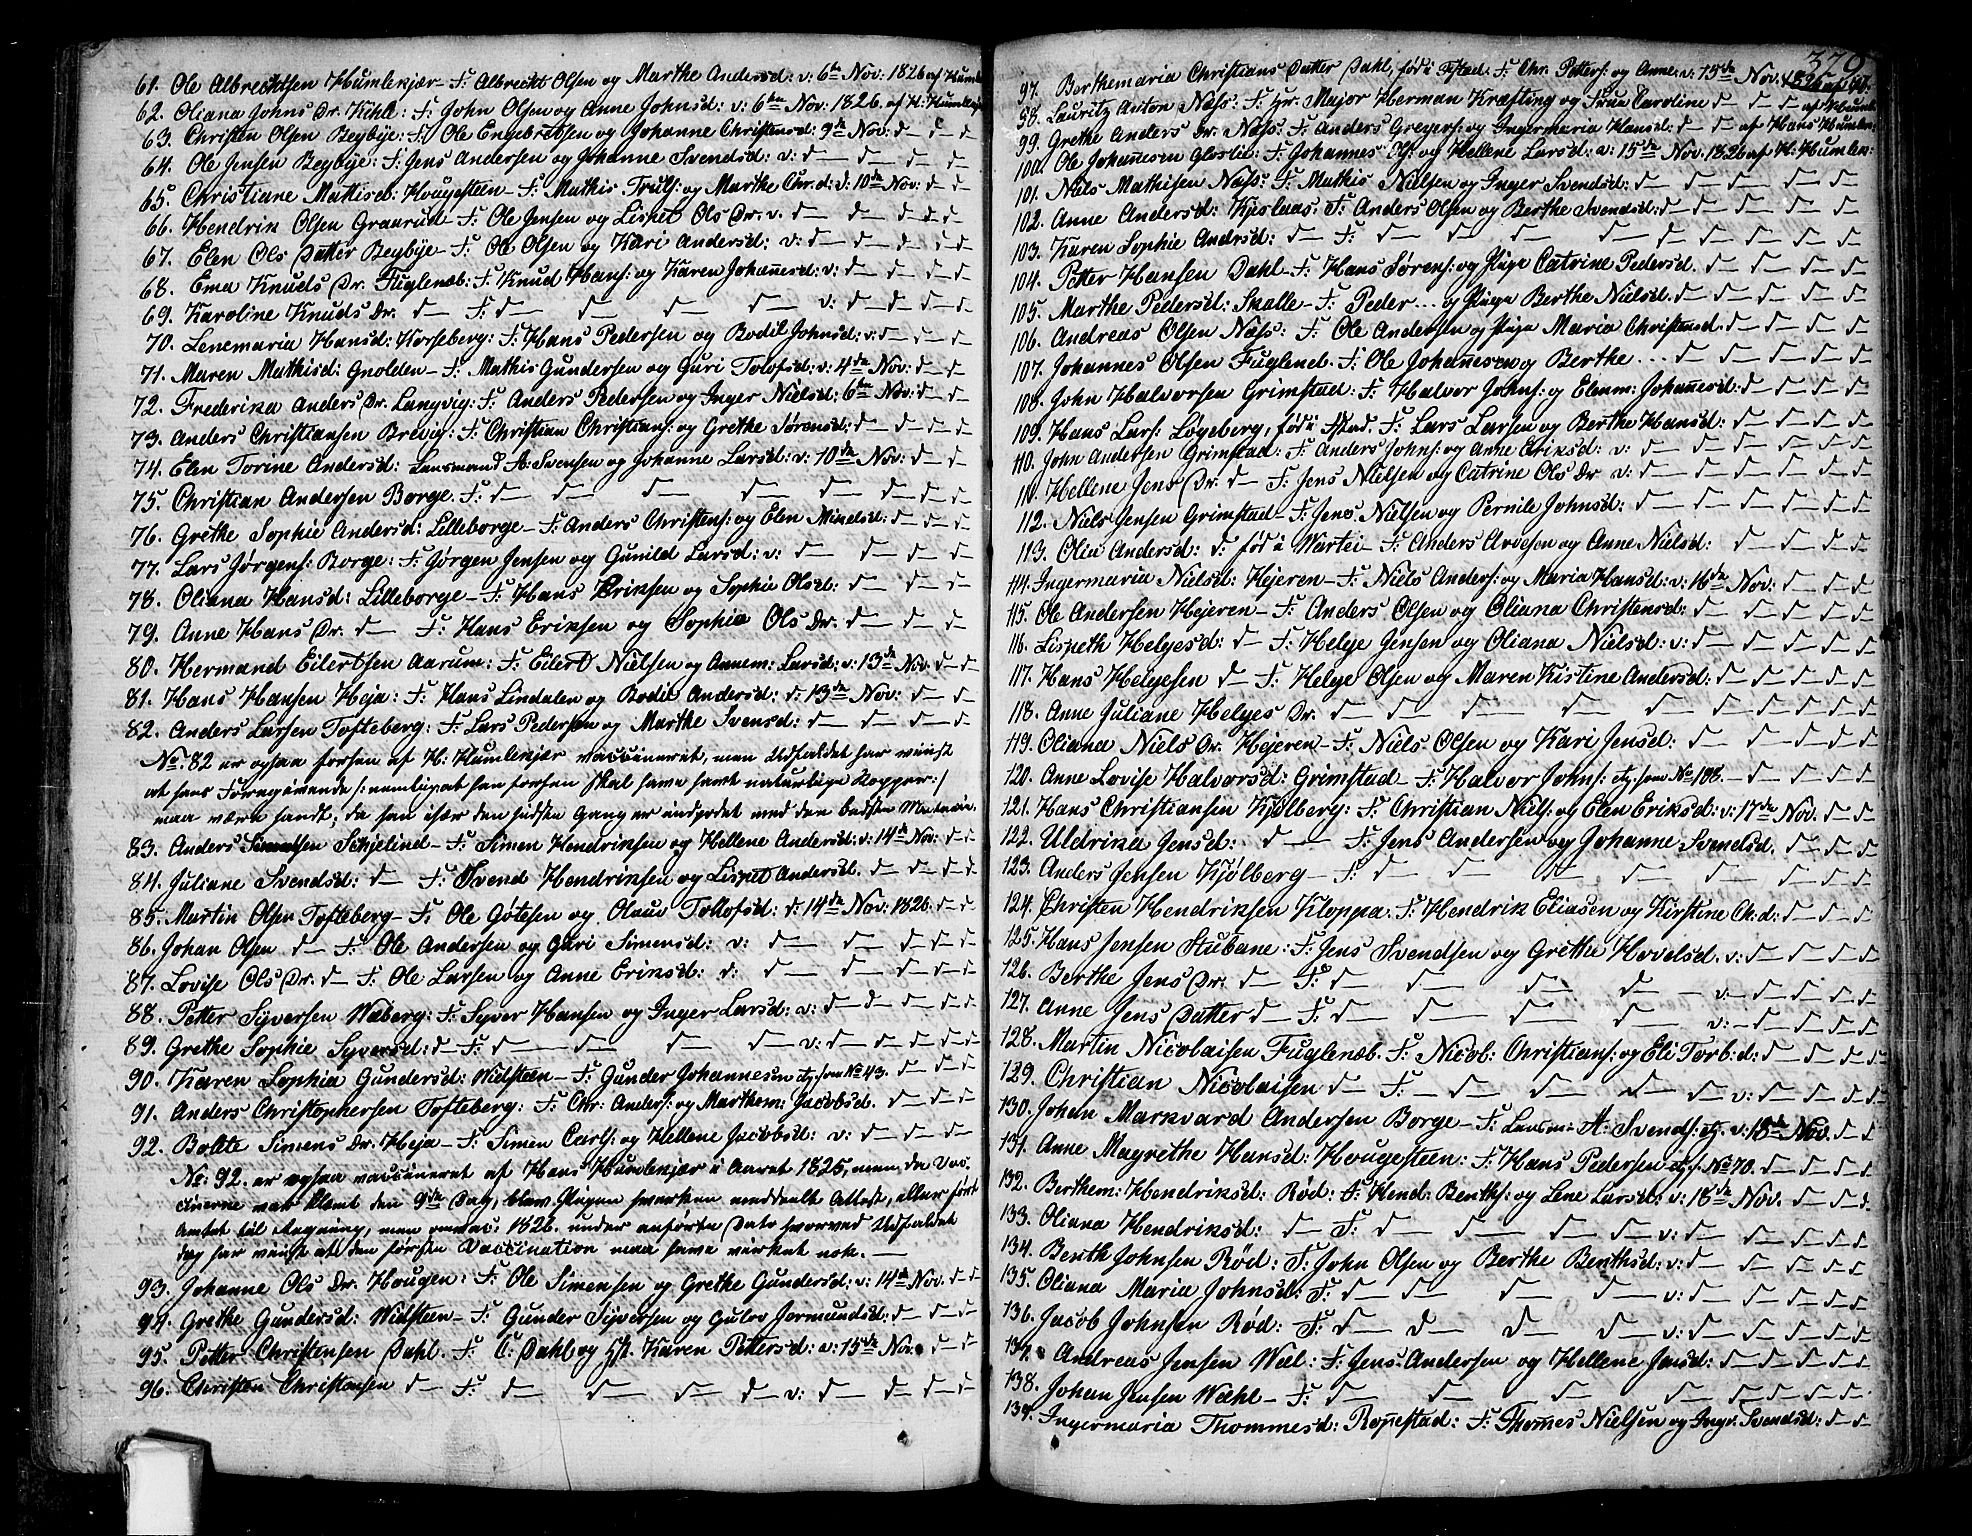 61. Ole Albrechtsen Humlekjær - F: Albrecht Olsen og Marthe Andersd: v: 6te Nov: 1826 af Humle
62. Oliana Johns Dr. Kihle: F: John Olsen og Anne Johnsd: v: 6te Nov: 1826. af H: Humlekj
63. Christen Olsen Begbye: F: Ole Engebretsen og Johanne Christensd: 9de Nov: d d d
64. Ole Jensen Begbye: F: Jens Andersen og Johanne Svendsd: v: d d d d
65. Christiane Mathisd: Hougesteen - F: Mathis Truls: og Marthe Chr.d: d: 10de Nov: d d
66. Hendrik Olsen Graarud - F: Ole Jensen og Lispet Ols Dr. v. d d d d d
67. Elen Ols Datter Begbye - F: Ole Olsen og Kari Andersd: v: d d d d d
68. Ema Knuds Dr. Fuglenæb: F: Knud Hans: og Karen Johanesd: v: d d d d
69. Karoline Knuds Dr. d F: d d d d v: d d d d
70. Lenemaria Hansd: Korseberg: F: Hans Pedersen og Bodil Johnsd: v: d d d d
71. Maren Mathisd: Gnolden - F: Mathis Gundersen og Guri Tolofsd: v: 4de Nov: d d
72. Frederika Anders Dr. Langvig: F: Anders Pedersen og Inger Nielsd: 6te Nov: d d
73. Anders Christiansen Brevig: F: Christian Christians: og Grethe Sørensd: d d d d
74. Elen Torine Andersd: Lensmand A: Svensen og Johanne Larsd: v: 10de Nov: d d
75. Christian Andersen Borge. F: d d d d d d d d
76. Grethe Sophie Andersd: Lilleborge - F: Anders Christens: og Elen Mindsd: d d d d
77. Lars Jørgens: Borge: F: Jørgen Jensen og Gunild Larsd: v: d d d d
78. Oliana Hansd: Lilleborge - F: Hans Eriksen og Sophie Olsd: d d d d
79. Anne Hans Dr. d F: Hans Eriksen og Sophia Ols Dr. d d d d
80. Hermand Eilertsen Aarum: F: Eilert Nielsen og Annem: Larsd: v: 13de Nov. d d
81. Hans Hansen Heja: F: Hans Lindalen og Bodil Andersd: d: 13de Nov: d d
82. Anders Larsen Tofteberg: F: Lars Pedersen og Marthe Svensd: d d d d
No. 82 er ogsaa forhen af H: Humlekjær vaccineret, men Udfaldet har viist
at hans Foregivende /: nemlig at han forhen skal have havt naturlige Kopper:/
maa være sandt, da han især den sidste Gang er indpodet med den bedste Materie.
83. Anders Simensen Schjelind - F: Simen Hendriksen og Hellene Andersd: v: 14de Nov: d d
84. Juliane Svendsd: d F: Svend Hendriksen og Lispet Andersd. d d d d
85. Martin Olsen Tofteberg - F: Ole Gøtesen og Olauv Tollofsd: d: 14de Nov: 1826. d d
86. Johan Olsen d F: Ole Andersen og Guri Simensd: v: d d d d d
87. Lovise Ols Dr. d F: Ole Larsen og Anne Eriksd: d: d d d d d
88. Petter Syversen Wæberg: F: Syver Hansen og Inger Larsd: v: d d d d d
89. Grethe Sophie Syversd: d F: d d d d v: d d d d d
90. Karen Sophia Gundersd: Widsteen - F: Gunder Johannesen etc. som No 43. d d d
91. Anders Christophersen Tofteberg: F: Chr: Anders: og Marthem: Jacobsd. d d d d
92. Boltte Simens Dr. Heja - F: Simen Carls: og Hellene Jacobsd: v: d d d d
No: 92. er ogsaa vaccineret af Hans Humlekjær i Aaret 1825, men da Vac-
cinerne var klemt den 9de Dag, blev Pigen hverken meddeelt Attest, eller ført
Antal til Regning, men omvac. 1826. under anførte Dato hvorved Udfaldet
dog har viist at den første Vaccination maa have virket nok. —
93. Johanne Ols Dr. Hougen: F: Ole Simensen og Grethe Gundersd: v: 14de Nov. d d
94. Grethe Gundersd: Widsteen - F: Gunder Syversen og Gulov Jormundsd: d d d d
95. Petter Christensen Dahl. F: C: Dahl og Karen Pettersd: v: 15de Nov. d d
96. Christen Christensen d F: d d d d v: d d d d
379
97. Berthemaria Christians Datter Dahl, fød i F: Chr. Petters: og Anne: v: 15de Nov. 1826 af H:
98. Lauritz Anton Næss: F: Hr. Major Herman Kræfting og Frue Caroline d d d af Humle
99. Grethe Anders Dr. Næss: F: Anders Gregers: og Ingermaria Hansd: d d af Hans Humlek:
100. Ole Johanesen Gloslie: F: Johannes Ols: og Hellene Larsd: v: 15de Nov. 1826 af H: Humlek:
101. Niels Mathisen Næss: F: Mathis Nielsen og Inger Svendsd: d d d d d
102. Anne Andersd: Kjeslaas: F: Anders Olsen og Berthe Svendsd: d d d d d
103. Karen Sophie Andrsd: d F: d d d d d d d d
104. Petter Hansen Dahl - F: Hans Sørens: og Pige Catrine Pedersd. d d d d d
105. Marthe Pedersd: Skalle - F: Peder ... og Pige Berthe Nielsd. d d d d d
106. Andreas Olsen Næss: F: Ole Andersen og Pige Maria Christensd. d d d d d
107. Johannes Olsen Fuglenæb. F: Ole Johanesen og Berthe ... d d d d d
108. John Halvorsen Grimstad: F: Halvor Johns: og Elenm: Johanesd: d d d d
109. Hans Lars: Løgeberg, fød i F: Lars Larsen og Berthe Hansd: d d d d
110. John Andersen Grimstad: F: Anders Johns: og Anne Eriksd: v: d d d d d
111. Hellene Jens Dr. d F: Jens Nielsen og Catrine Ols Dr. v: d d d d d
112. Niels Jensen Grimstad - F: Jens Nielsen og Pernile Johnsd: d d d d d
113. Olia Andersd: d: fød i Wartei - F: Anders Arvesen og Anne Nielsd: d d d d
114. Ingermaria Nielsd: Hejeren - F: Niels Anders: og Maria Hansd: v: 16de Nov: d d d
115. Ole Andersen Hejeren - F: Anders Olsen og Oliana Christensd: d d d d d
116. Lispeth Helgesd: d F: Helge Jensen og Oliana Nielsd: v: d d d d d
117. Hans Helgesen d F: Helge Olsen og Maren Kistine Andersd: d d d d d
118. Anne Juliane Helges Dr. d d d d d d d d d
119. Oliana Niels Dr. Hejeren - F: Niels Olsen og Kari Jensd: d d d d d
120. Anne Lovise Halvorsd: Grimstad - F: Halvor Johns: etc. som No 108. d d d d
121. Hans Christiansen Kjølberg: F: Christian Niels: og Elen Eriksd: v: 17de Nov. d d
122. Uldrika Jensd: d F: Jens Andersen og Johanne Svendsd. d d d d
123. Anders Jensen Kjølberg - F: d d d d d d d d
124. Christen Hendriksen Kloppa: F: Hendrik Eliasen og Kirstine Ch:d: d d d
125. Hans Jensen Stubane: F: Jens Svendsen og Grethe Hovelsd. v: d d d d
126. Berthe Jens Dr. d F: d d d d v: d d d d
127. Anne Jens Datter d F: d d d d v: d d d d
128. Martin Nicolaisen Fuglenæb. F: Nicol: Christians: og Eli Torb:d: d d d d
129. Christian Nicolaisen d F: d d d d v: d d d d
130. Johan Markvard Andersen Borge - F: Lensm: A: Svends: etc. v: 18de Nov. d d
131. Anne Magrethe Hansd: Hougesteen: F: Hans Pedersen etc. s. No 70. d d d d
132. Berthem: Hendriksd: Rød: F: Hend: Benths: og Lene Larsd: v: 18de Nov. d d d
133. Oliana Hendriksd: d F: d d d d v: d d d d
134. Benth Johnsen Rød: F: John Olsen og Berthe Benthsd: v: d d d d d
135. Oliana Maria Johnsd: F: d d d d v: d d d d
136. Jacob Johnsen Rød: F: d d d d v: d d d d
137. Andreas Jensen Wæl: F: Jens Andersen og Hellene Jensd: d d d d d
138. Johan Jensen Wæhl - F: d d d d d d d d
139. Ingermaria Thommesd: Ropestad: F: Thomes Nielsen og Inge: Svendsd: d d